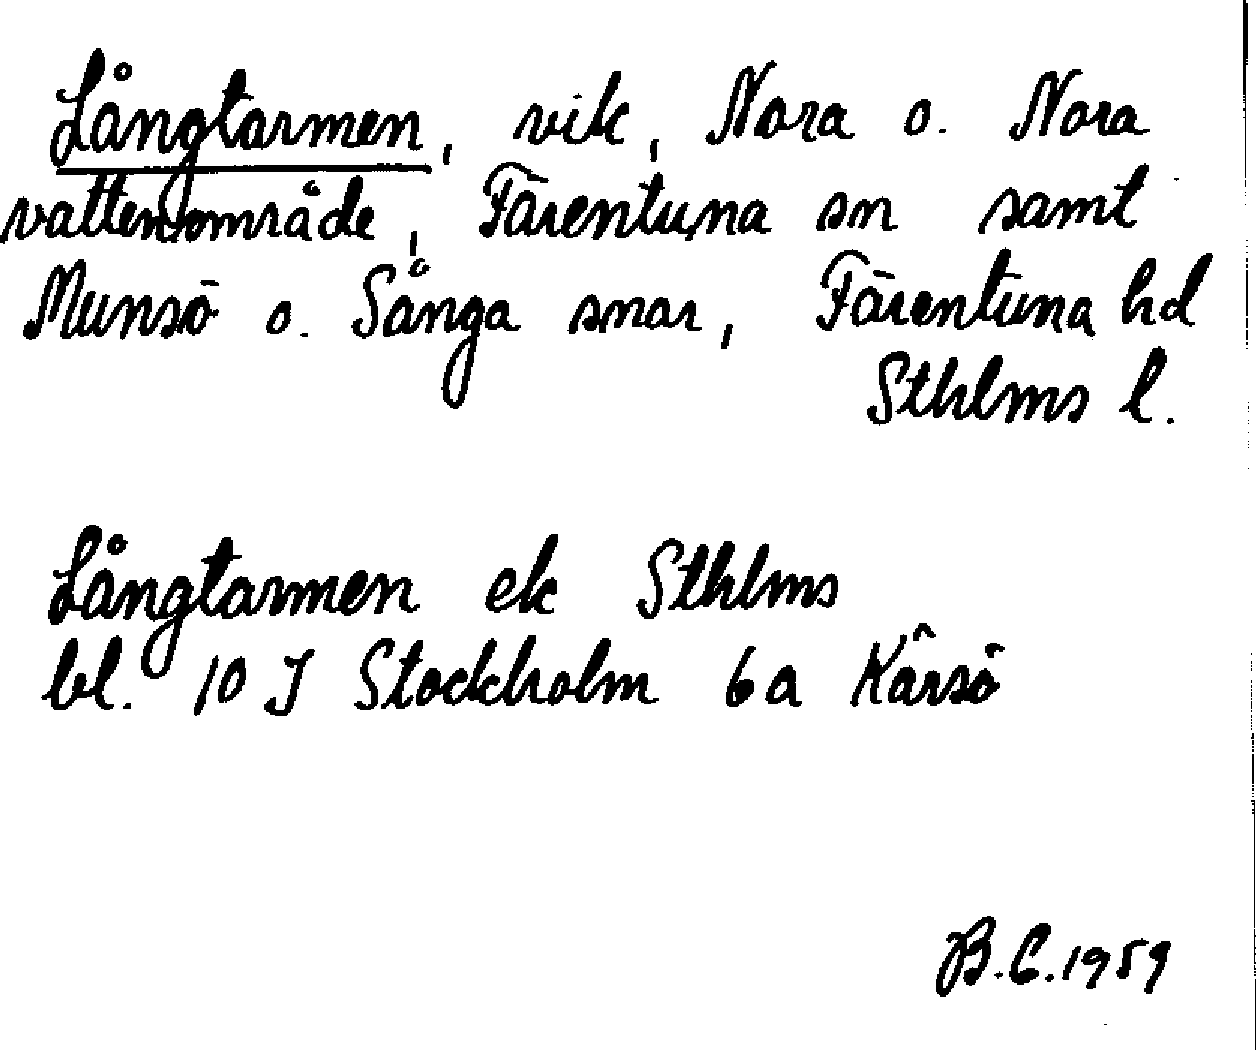 Långtarmen, vik, Nora o. Nora
vattenområde, Färentuna sn samt
Munsö o. Sånga snar, Färentuna hd
Sthlms l.
Långtarmen ek Sthlms
bl. 10 J Stockholm 6a Kärsö
B.C. 1959